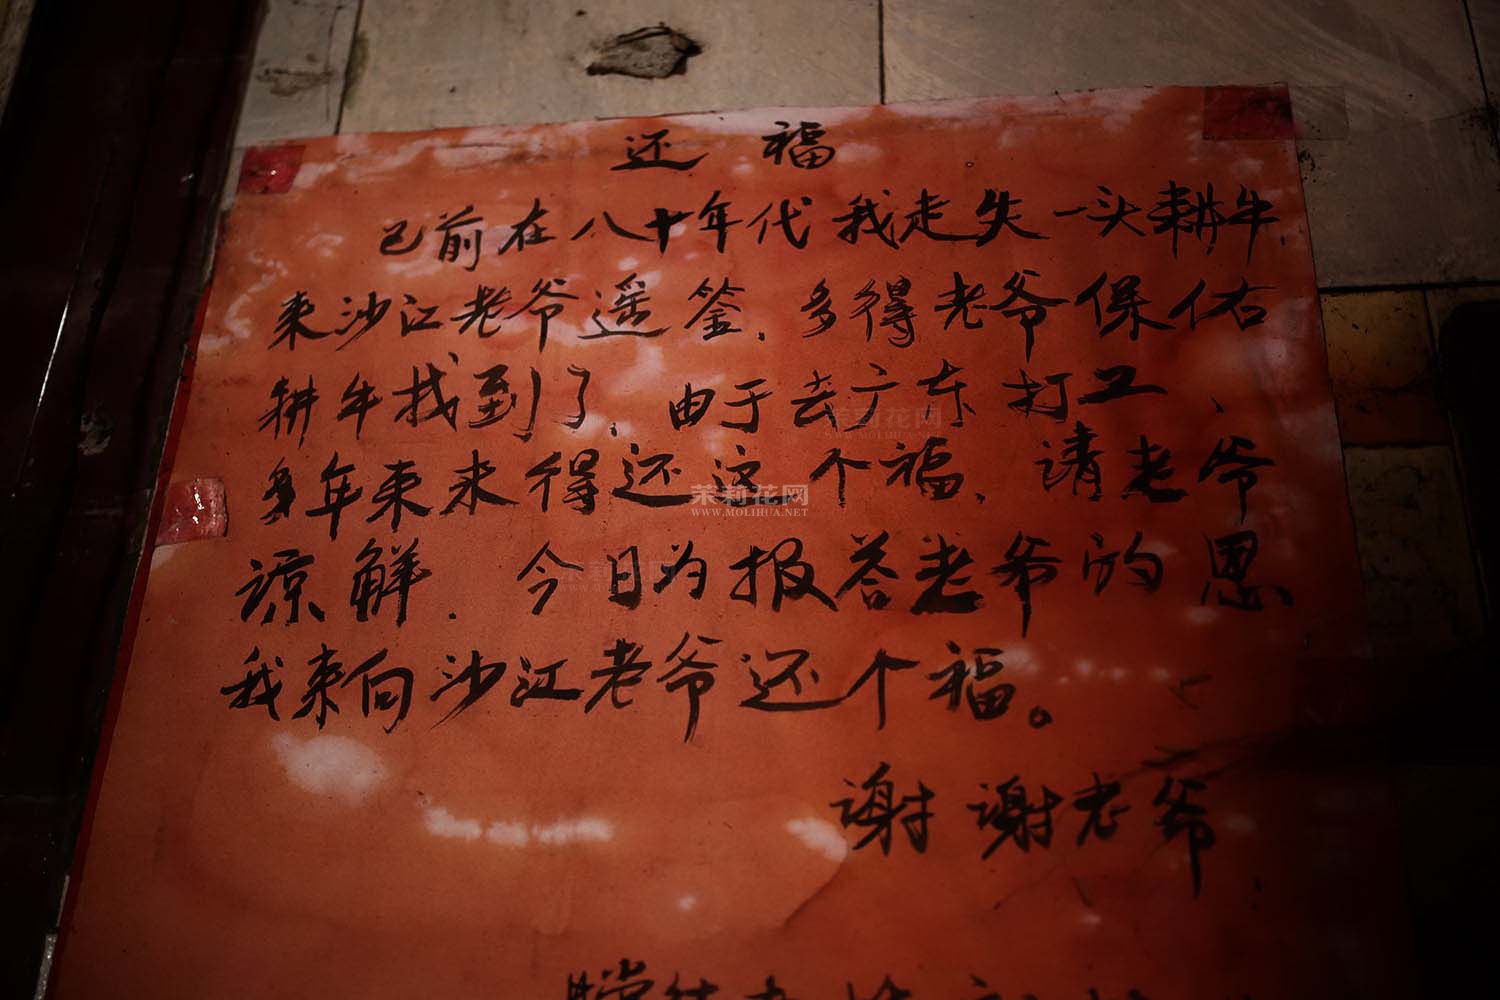 还福
已前在八十年代我走失一头耕牛
来沙江老爷遥签，多得老爷保佑
耕牛找到了，由于去广东打工、
多年来未得还这个福，请老爷
谅解．今日为报答老爷的恩
我来向沙江老爷还个福。
谢谢老爷
茉莉花网
WWW.MOLIHUA.NET